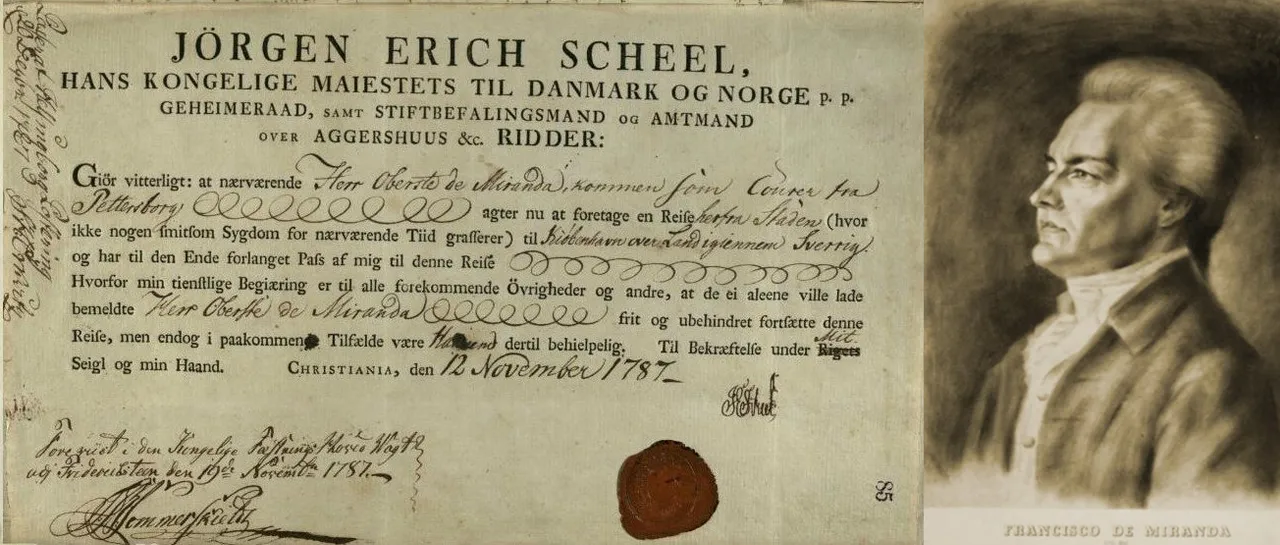 JÖRGEN ERICH SCHEEL,
HANS KONGELIGE MAIESTETS TIL DANMARK OG NORGE P. P.
GEHEIMERAAD, SAMT STIFTBEFALINGSMAND OG AMTMAND
OVER AGGERSHUUS &c. RIDDER:
Giör vitterligt: at nærværende Herr Oberste de Miranda, kommen som Courer fra
Pettersborg agter nu at foretage en Reise herfra Staden (hvor
ikke nogen smitsom Sygdom for nærværende Tiid grasserer) til Kiöbenhavn over Land igiennem Sverrig
og har til den Ende forlanget Pass af mig til denne Reise
Hvorfor min tienstlige Begiæring er til alle forekommende Övrigheder og andre, at de ei aleene ville lade
bemeldte Herr Oberste de Miranda frit og ubehindret fortsætte denne
Reise, men endog i paakommende Tilfælde være dertil behielpelig. Til Bekræftelse under Mit
Seigl og min Haand. CHRISTIANIA, den 12 November 1787
Foreviist i den Kongelige Fæstnings Hoved Wagt
og Fridericksteen den 19de Novembr 1787.
85
FRANCISCO DE MIRANDA